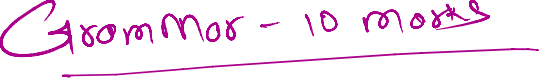 Grammar - 10 marks